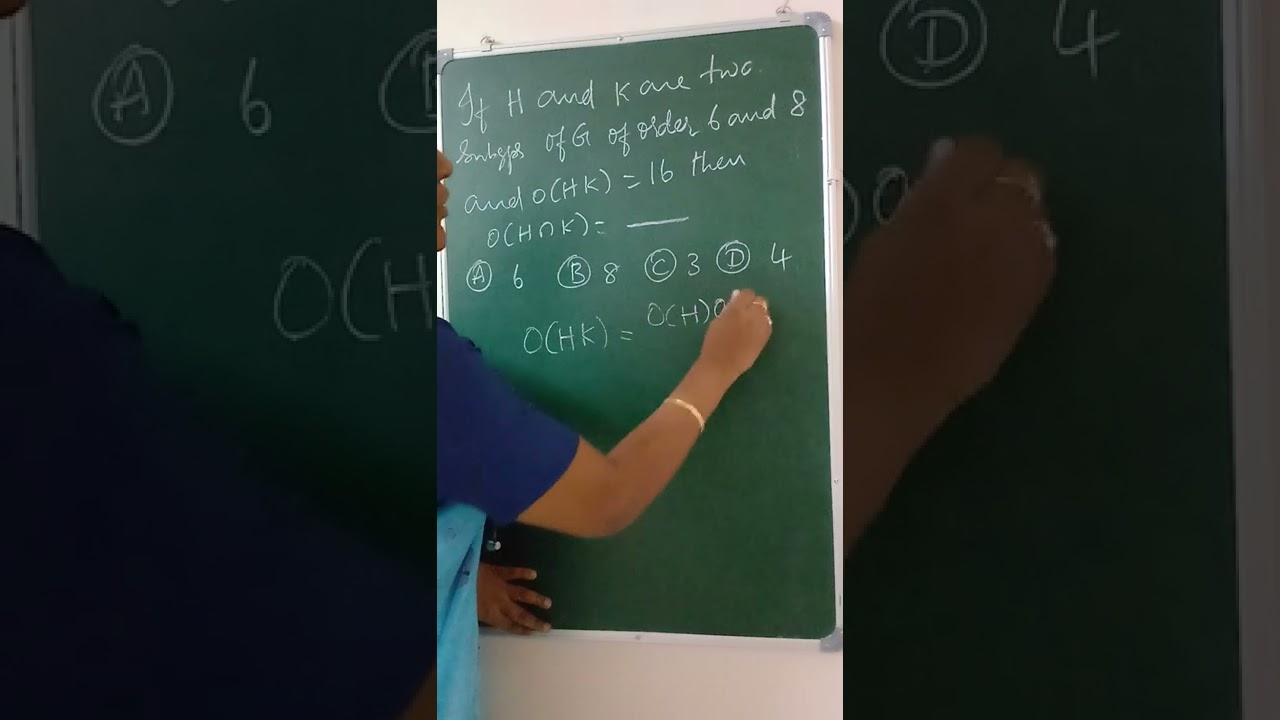 If H and K are two
Subgps of G of order 6 and 8
and O(HK) = 16 then
O(H∩K) = ___
Ⓐ 6 Ⓑ 8 Ⓒ 3 Ⓓ 4
O(HK) = O(H)O